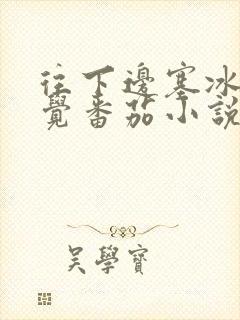 往下邊塞冰
覺番茄小說
吳學寶